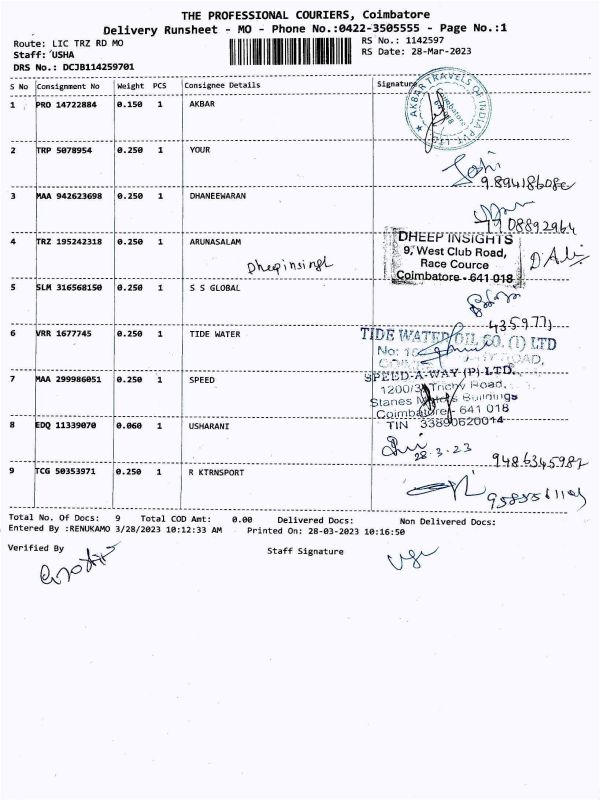 THE PROFESSIONAL COURIERS, Coimbatore
Delivery Runsheet - MO - Phone No.:0422-3505555 - Page No.:1
Route: LIC TRZ RD MO
RS No.: 1142597
Staff: USHA
RS Date: 28-Mar-2023
DRS No.: DCJB114259701
S No Consignment No Weight PCS Consignee Details Signature
1 PRO 14722884 0.150 1 AKBAR
AKBAR TRAVELS OF INDIA PVT. LTD.
Coimbatore
2 TRP 5078954 0.250 1 YOUR
3 MAA 942623698 0.250 1 DHANEEWARAN
4 TRZ 195242318 0.250 1 ARUNASALAM
Dheepinsight
DHEEP INSIGHTS
9, West Club Road,
Race Cource
Coimbatore - 641 018
5 SLM 316568150 0.250 1 S S GLOBAL
435977)
6 VRR 1677745 0.250 1 TIDE WATER
TIDE WATER OIL CO. (I) LTD
No: ROAD,
7 MAA 299986051 0.250 1 SPEED
SPEED-A-WAY (P) LTD.
1200/3 Trichy Road,
Stanes Motors Buildings
Coimbatore - 641 018
TIN 33890620014
8 EDQ 11339070 0.060 1 USHARANI
28.3.23
9486345982
9 TCG 50353971 0.250 1 R KTRNSPORT
Total No. Of Docs: 9 Total COD Amt: 0.00 Delivered Docs: Non Delivered Docs:
Entered By :RENUKAMO 3/28/2023 10:12:33 AM Printed On: 28-03-2023 10:16:50
Verified By
Staff Signature